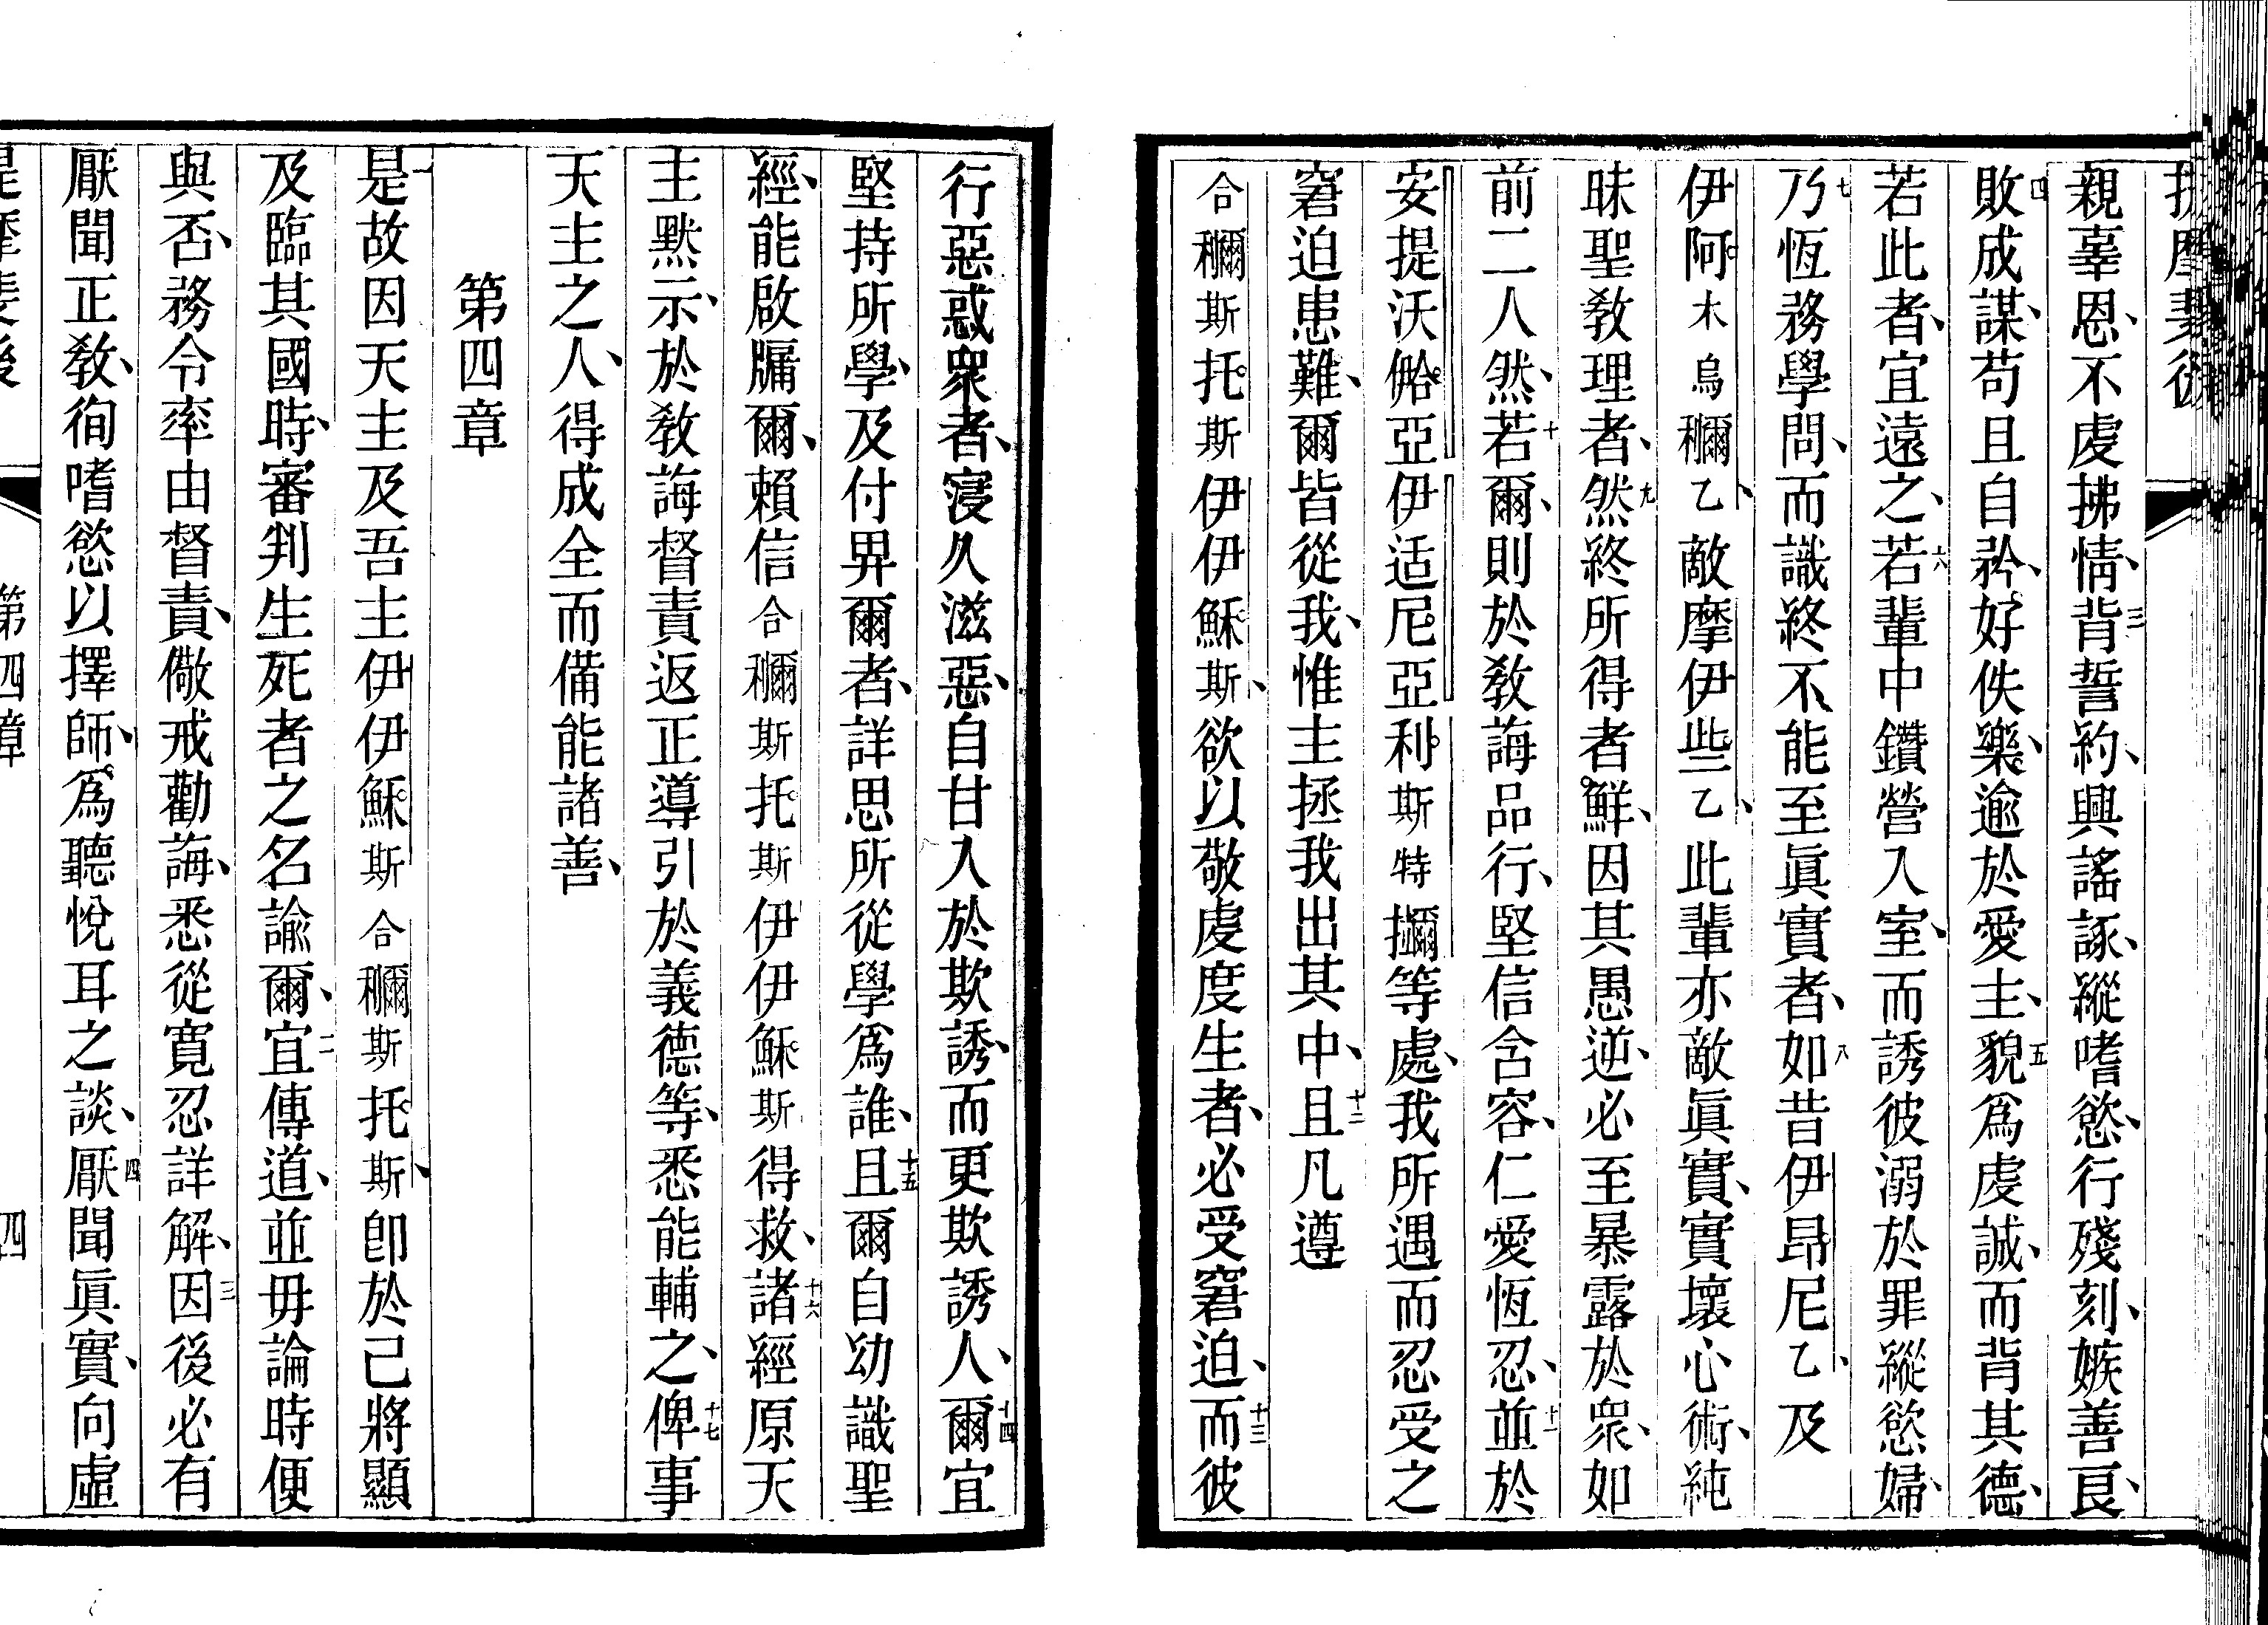 親辜恩、不虔拂情、三背誓約、興謠諑、縱嗜慾、行殘刻、嫉善良、
四敗成謀、苟且自矜、好佚樂、逾於愛主、五貌爲虔誠、而背其德、
若此者、宜遠之、六若輩中鑽營入室、而誘彼溺於罪縱慾婦、
七乃恆務學問、而識終不能至眞實者、八如昔伊昂尼乙、及
伊阿木烏穪乙、敵摩伊些乙、此輩亦敵眞實、實壞心術、純
昧聖教理者、九然終所得者鮮、因其愚逆、必至暴露於衆、如
前二人然、十若爾、則於教誨品行、堅信含容、仁愛恆忍、十一並於
安提沃㑹亞伊适尼亞利斯特擟等處、我所遇而忍受之
窘迫患難、爾皆從我、惟主拯我出其中、十二且凡遵
合穪斯托斯伊伊穌斯、欲以敬虔度生者、必受窘迫、十三而彼
行惡惑衆者、寖久滋惡、自甘入於欺誘、而更欺誘人、十四爾宜
堅持所學、及付畀爾者、詳思所從學爲誰、十五且爾自幼識聖
經、能啟牖爾、賴信合穪斯托斯伊伊穌斯得救、十六諸經原天
主默示、於教誨督責返正導引於義德等、悉能輔之、十七俾事
天主之人、得成全而備能諸善、
第四章
一是故因天主及吾主伊伊穌斯合穪斯托斯、卽於己將顯
及臨其國時、審判生死者之名諭爾、二宜傳道、並毋論時便
與否、務令率由督責、儆戒勸誨、悉從寬忍詳解、三因後必有
厭聞正教、徇嗜慾以擇師、爲聽悅耳之談、四厭聞眞實、向虛
第四章
四